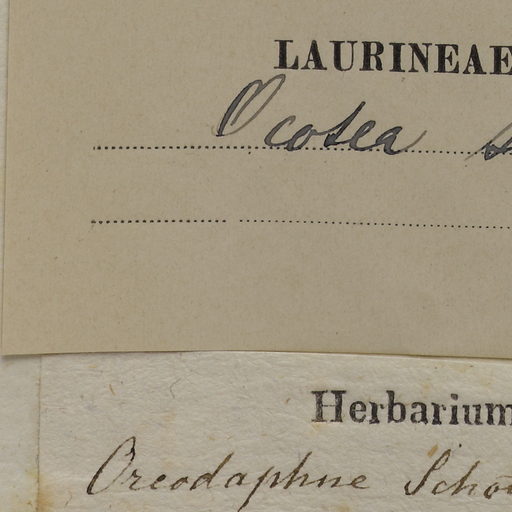 LAURINEAE
Ocotea
Herbarium
Oreodaphne Scho